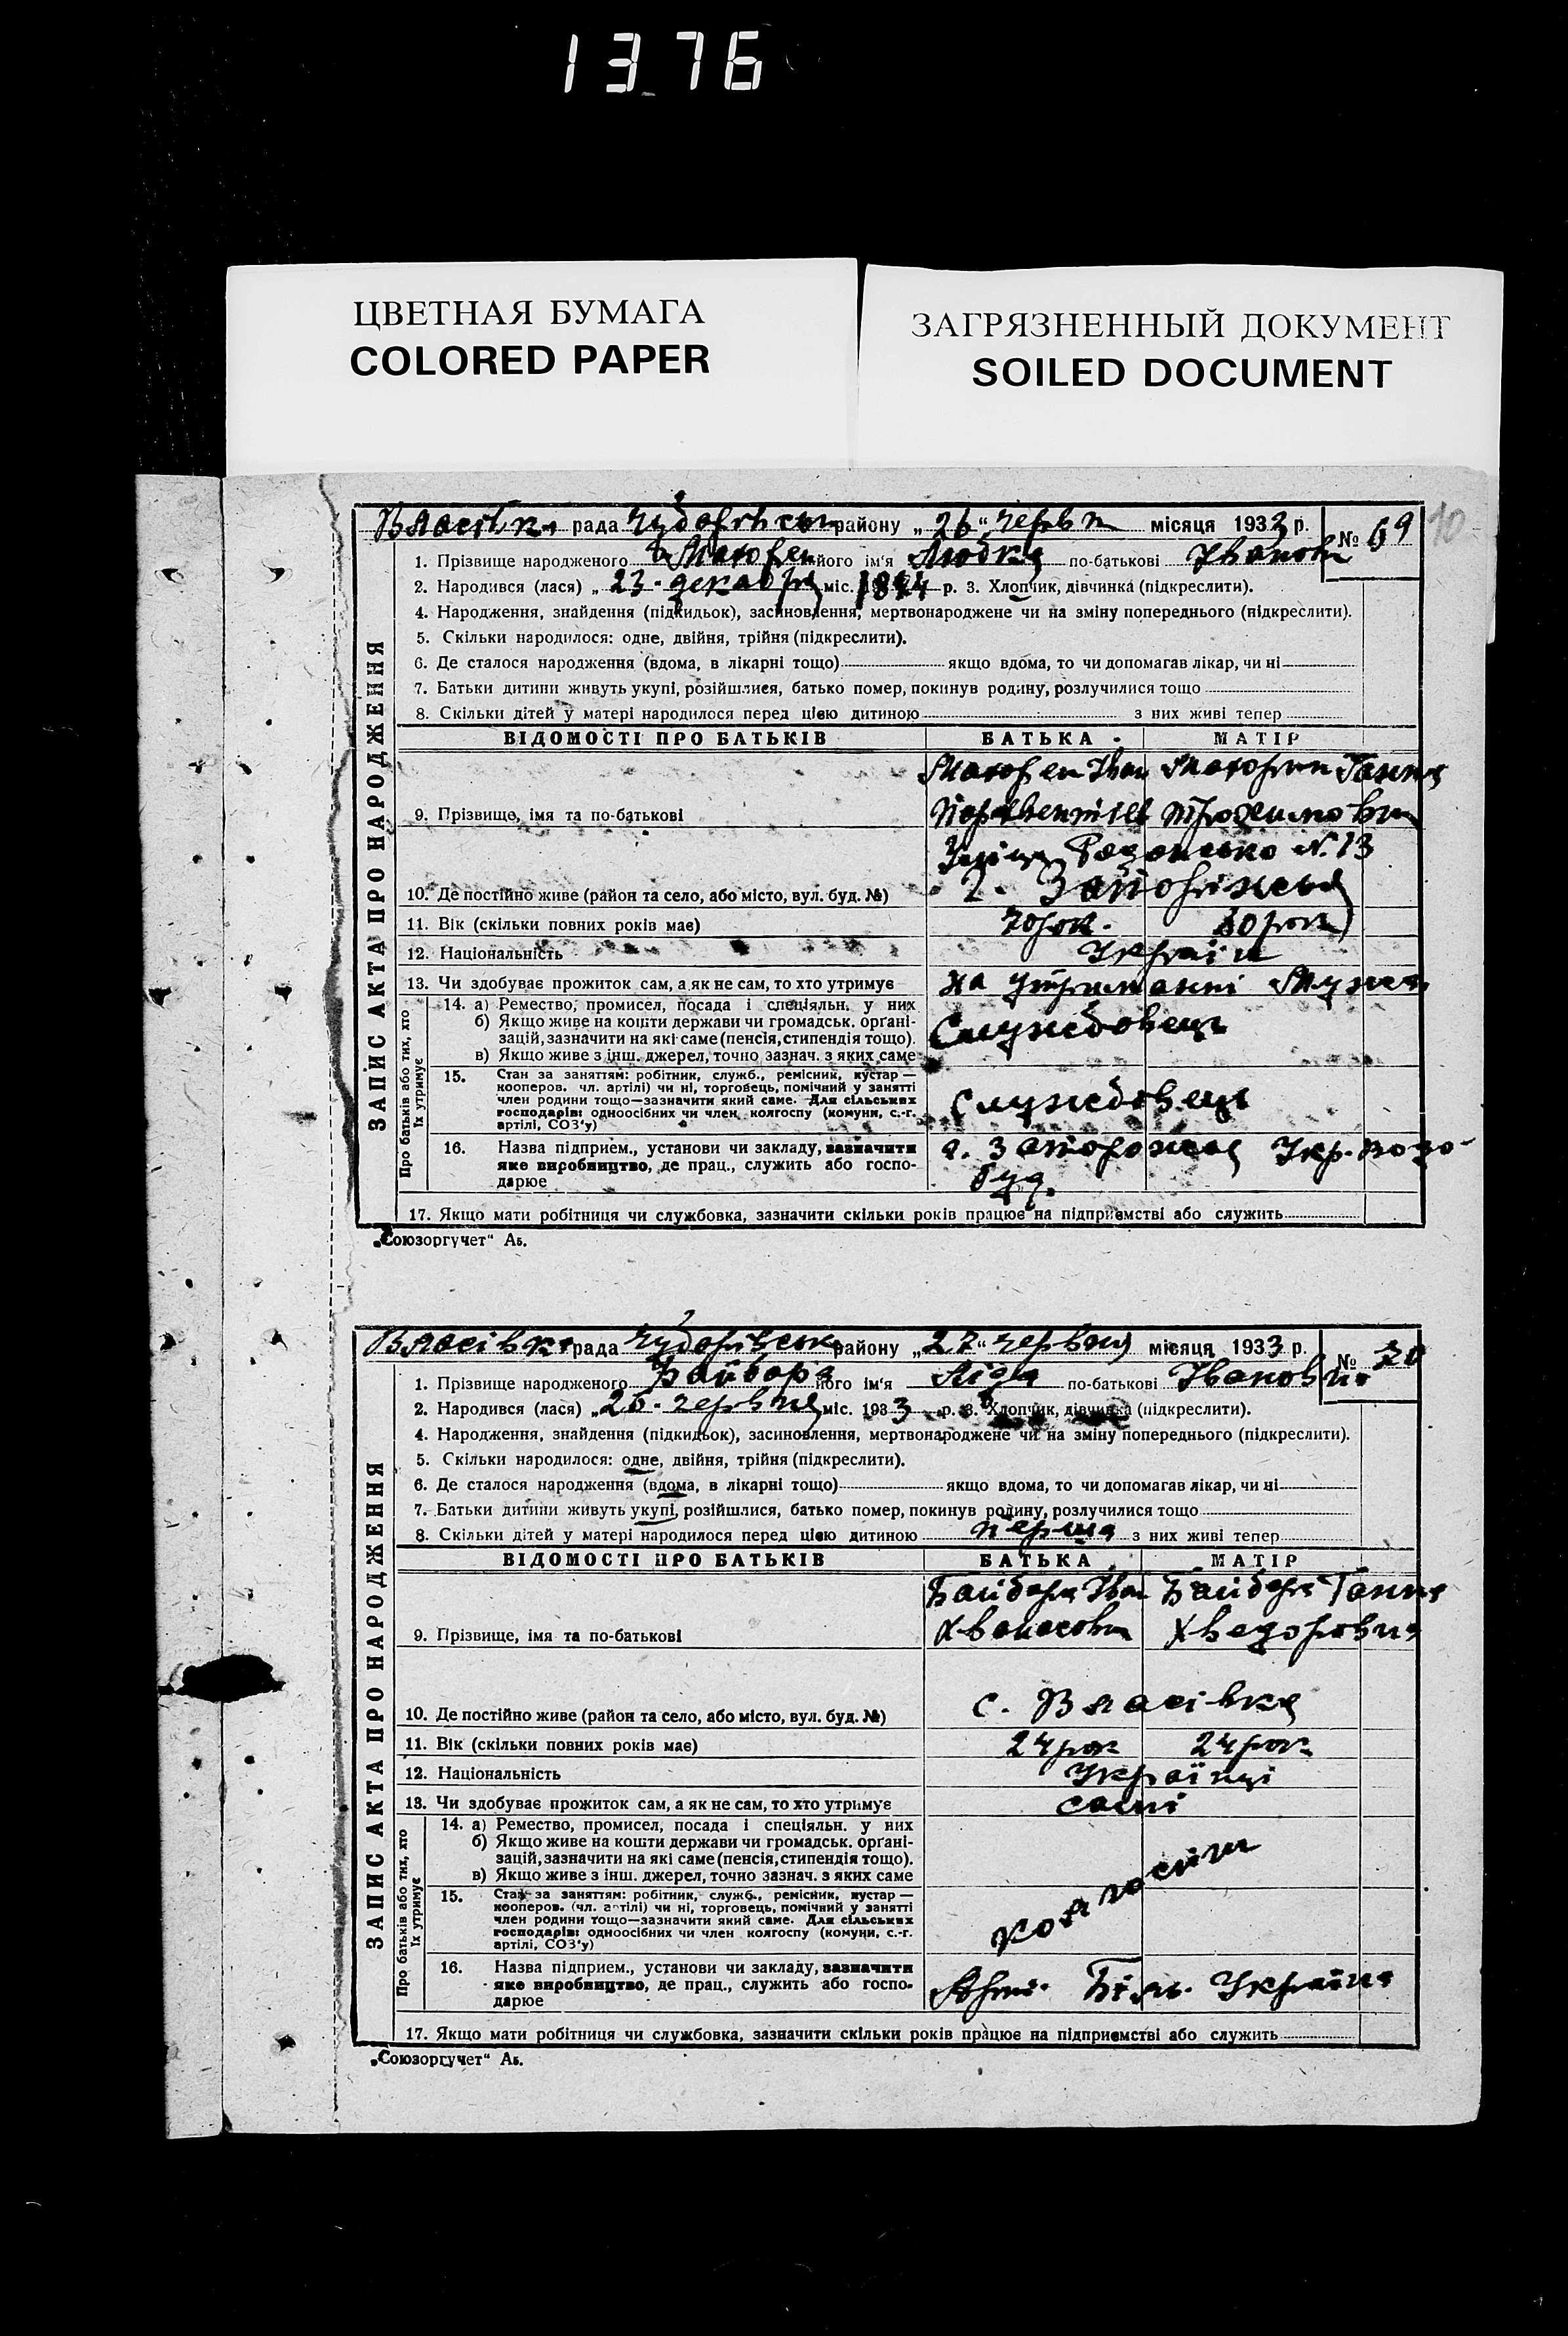 1376
ЦВЕТНАЯ БУМАГА
COLORED PAPER
ЗАГРЯЗНЕННЫЙ ДОКУМЕНТ
SOILED DOCUMENT
рада району „26“ червн місяця 1933 р. № 69
10
ЗАПИС АКТА ПРО НАРОДЖЕННЯ
1. Прізвище народженого його ім'я Любка по-батькові
2. Народився (лася) „23 - декабря міс. р. 3. Хлопчик, дівчинка (підкреслити).
4. Народження, знайдення (підкидьок), засиновлення, мертвонароджене чи на зміну попереднього (підкреслити).
5. Скільки народилося: одне, двійня, трійня (підкреслити).
6. Де сталося народження (вдома, в лікарні тощо) якщо вдома, то чи допомагав лікар, чи ні
7. Батьки дитини живуть укупі, розійшлися, батько помер, покинув родину, розлучилися тощо
8. Скільки дітей у матері народилося перед цією дитиною з них живі тепер
ВІДОМОСТІ ПРО БАТЬКІВ БАТЬКА МАТІР
9. Прізвище, імя та по-батькові Іван Ганна
N. 13
10. Де постійно живе (район та село, або місто, вул. буд. №)
11. Вік (скільки повних років має)
12. Національність Україн
13. Чи здобуває прожиток сам, а як не сам, то хто утримує на утриманні мужа
Про батьків або тих, хто їх утримує
14. а) Ремество, промисел, посада і спеціяльн. у них
б) Якщо живе на кошти держави чи громадськ. орґані-
зацій, зазначити на які саме (пенсія, стипендія тощо).
в) Якщо живе з інш. джерел, точно зазнач. з яких саме
Службовець
15. Стан за заняттям: робітник, служб., ремісник, кустар —
кооперов. чл. артілі) чи ні, торговець, помічний у занятті
член родини тощо—зазначити який саме. Для сільських
господарів: одноосібних чи член колгоспу (комуни, с.-г.
артілі, СОЗ'у)
Службовець
16. Назва підприєм., установи чи закладу, зазначити
яке виробництво, де прац., служить або госпо-
дарює
17. Якщо мати робітниця чи службовка, зазначити скільки років працює на підприємстві або служить
„Союзоргучет“ Аб.
рада району „27“ червня місяця 1933 р. № 70
ЗАПИС АКТА ПРО НАРОДЖЕННЯ
1. Прізвище народженого Байбара його ім'я Ліда по-батькові Івановна
2. Народився (лася) „26 - червня міс. 1933 р. 3. Хлопчик, дівчинка (підкреслити).
4. Народження, знайдення (підкидьок), засиновлення, мертвонароджене чи на зміну попереднього (підкреслити).
5. Скільки народилося: одне, двійня, трійня (підкреслити).
6. Де сталося народження (вдома, в лікарні тощо) якщо вдома, то чи допомагав лікар, чи ні
7. Батьки дитини живуть укупі, розійшлися, батько помер, покинув родину, розлучилися тощо
8. Скільки дітей у матері народилося перед цією дитиною перша з них живі тепер
ВІДОМОСТІ ПРО БАТЬКІВ БАТЬКА МАТІР
Байбара Іван Байбара Ганна
9. Прізвище, імя та по-батькові Хведоровна
10. Де постійно живе (район та село, або місто, вул. буд. №) с. Власівка
11. Вік (скільки повних років має) 24 рок 24 рок
12. Національність Українці
13. Чи здобуває прожиток сам, а як не сам, то хто утримує самі
Про батьків або тих, хто їх утримує
14. а) Ремество, промисел, посада і спеціяльн. у них
б) Якщо живе на кошти держави чи громадськ. орґані-
зацій, зазначити на які саме (пенсія, стипендія тощо).
в) Якщо живе з інш. джерел, точно зазнач. з яких саме
15. Стан за заняттям: робітник, служб., ремісник, кустар —
кооперов. (чл. артілі) чи ні, торговець, помічний у занятті
член родини тощо—зазначити який саме. Для сільських
господарів: одноосібних чи член колгоспу (комуни, с.-г.
артілі, СОЗ'у)
16. Назва підприєм., установи чи закладу, зазначити
яке виробництво, де прац., служить або госпо-
дарює
Україна
17. Якщо мати робітниця чи службовка, зазначити скільки років працює на підприємстві або служить
„Союзоргучет“ Аб.